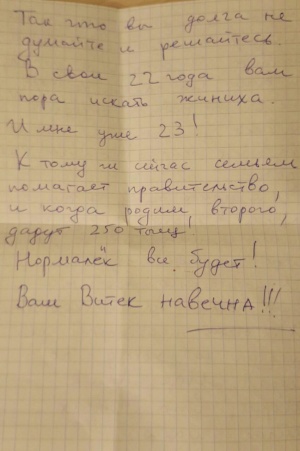 Так што вы долга не
думайте и решайтесь.
В свои 22 года вам
пора искать жиниха.
И мне уже 23!
К тому ж сичас семьям
помагает правительство,
и когда родим второго,
дадут 250 тыщ,
Нормалёк все будет!
Ваш Витек навечна!!!